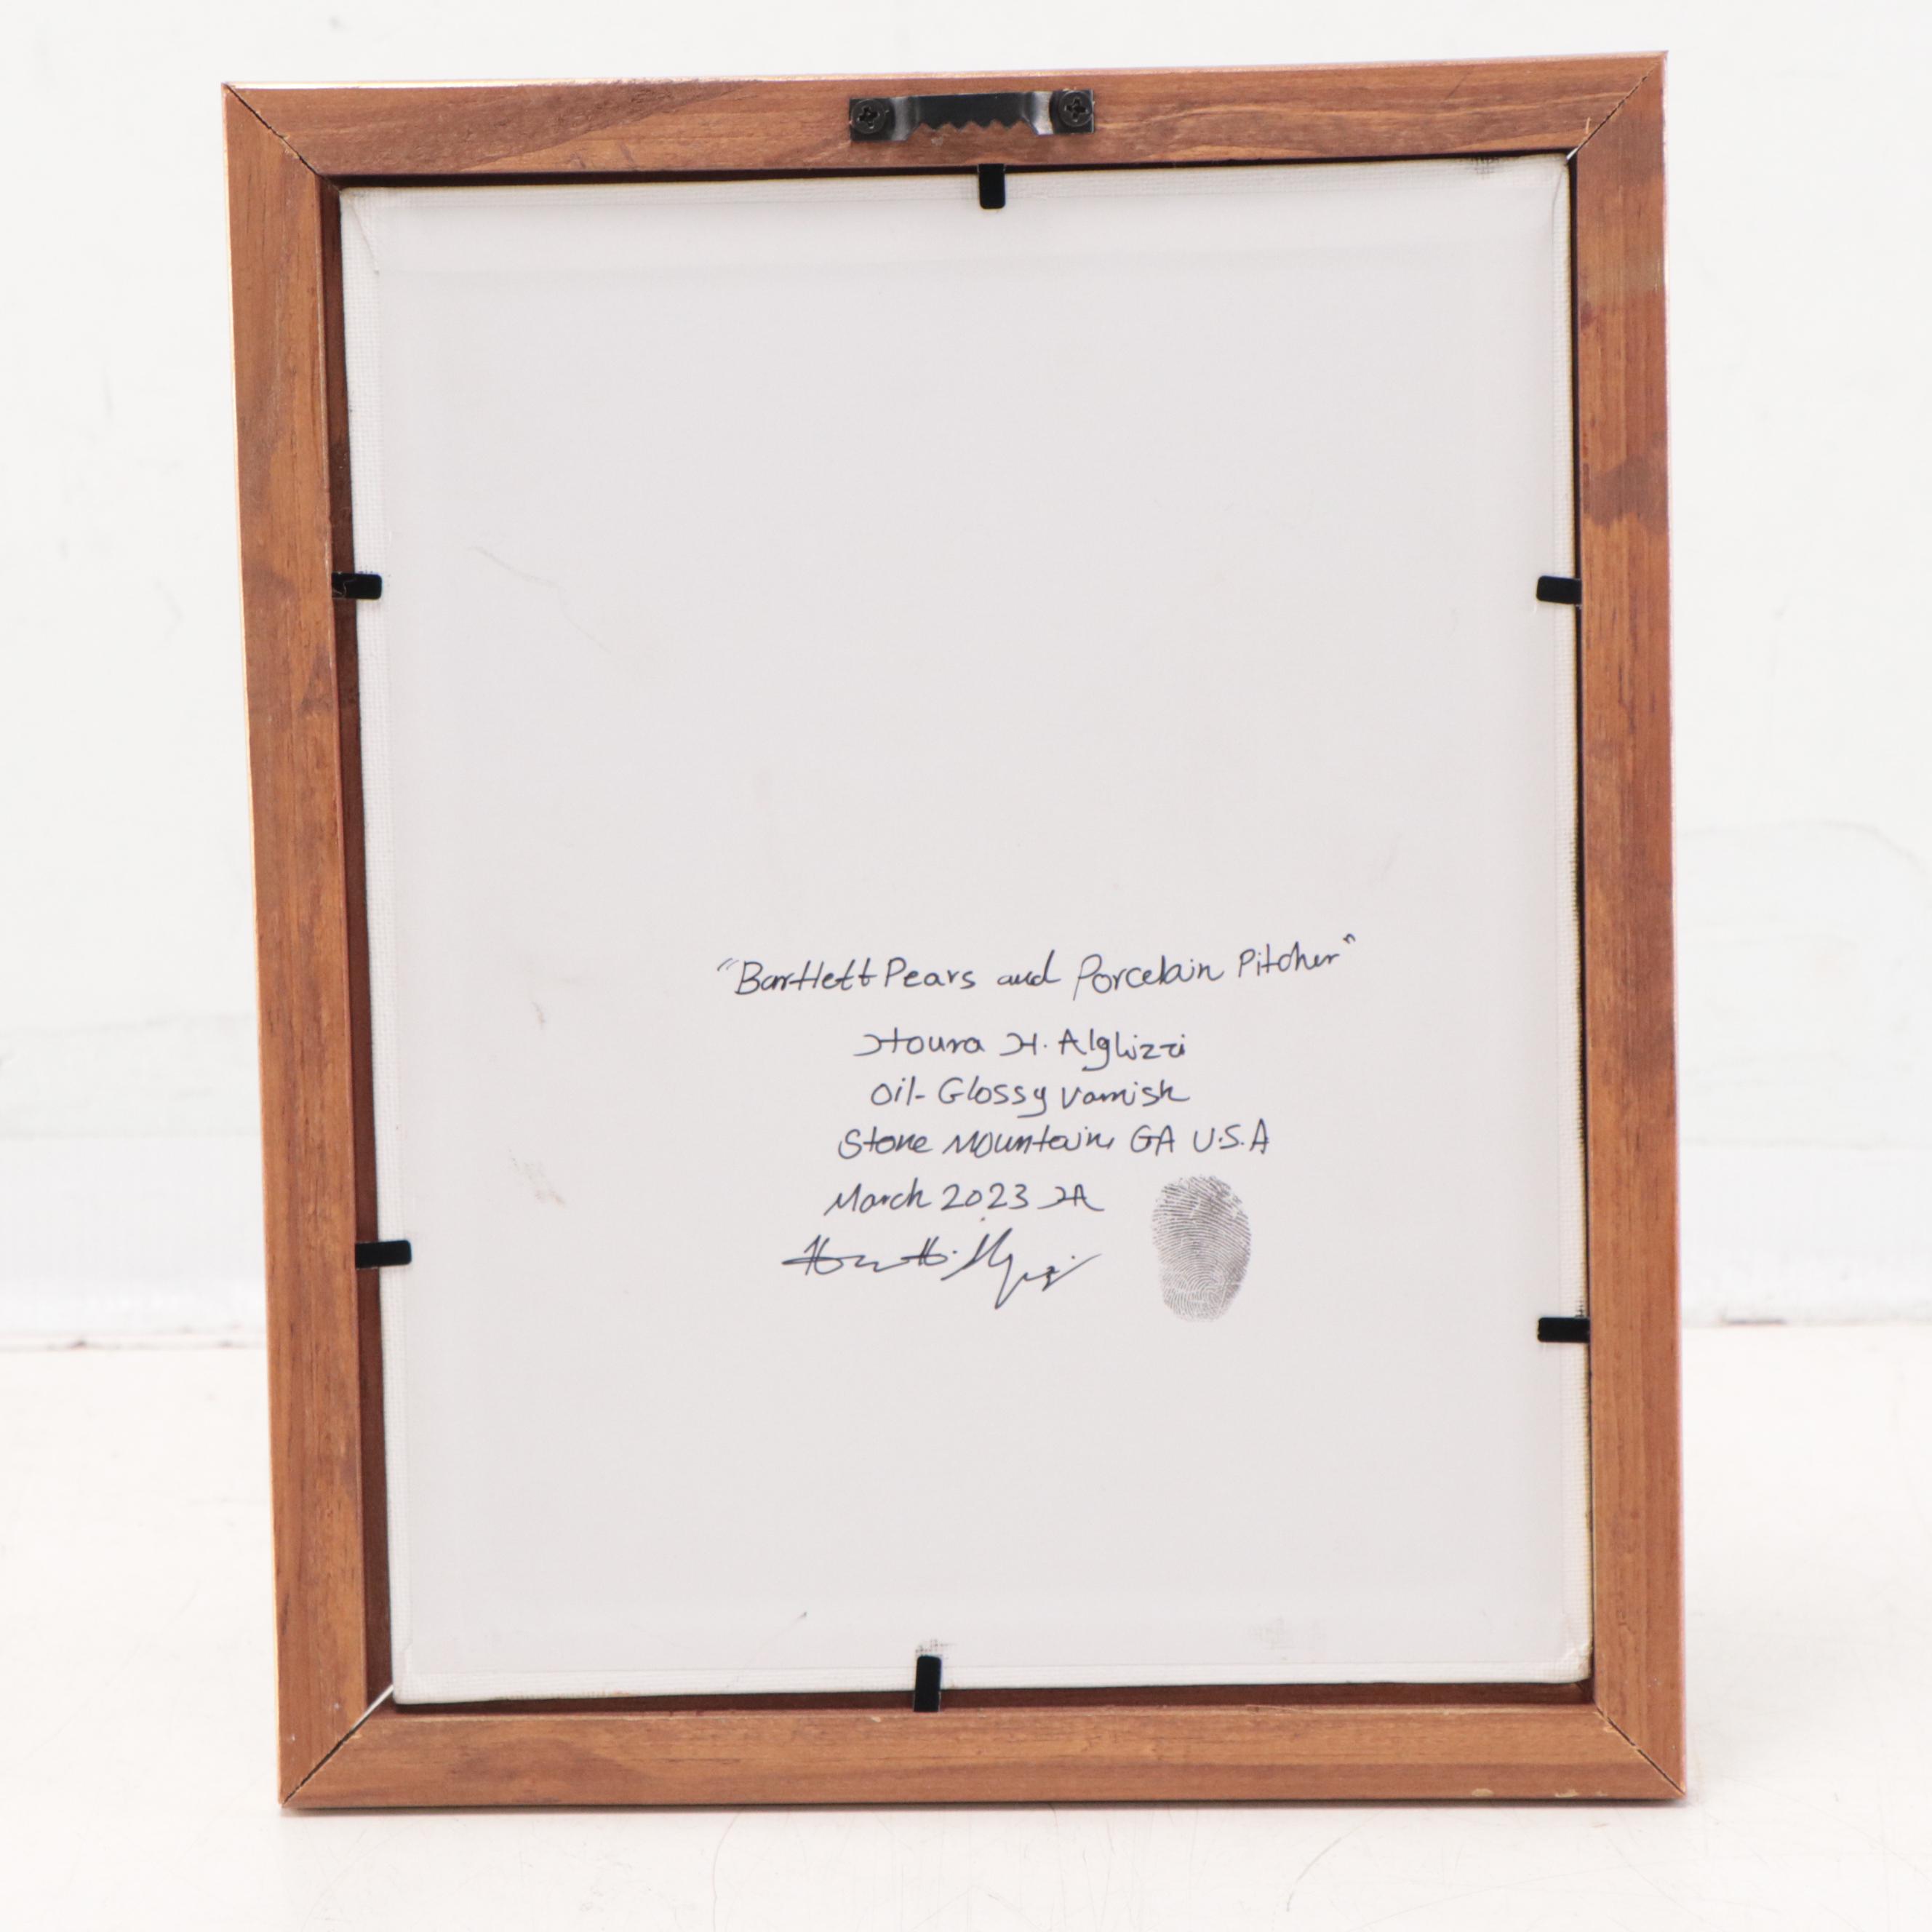 "Bartlett Pears and Porcelain Pitcher"
Houra H. Alghizzi
Oil- Glossy varnish
Stone Mountain, GA U.S.A
March 2023 HA
Houra H. Alghizzi